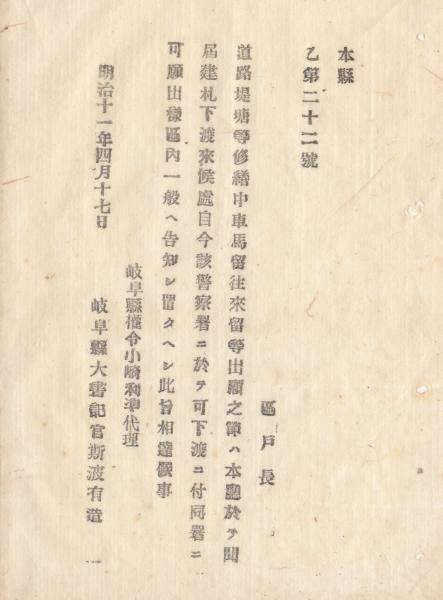 本縣
乙第二十二號
區戸長
道路堤塘等修繕中車馬留往來留等出願之節ハ本廳於テ聞
屆建札下渡來候處自今該警察署ニ於テ可下渡ニ付同署ニ
可願出樣區內一般ヘ告知シ置クヘシ此旨相達候事
岐阜縣權令小崎利準代理
明治十一年四月十七日
岐阜縣大書記官斯波有造